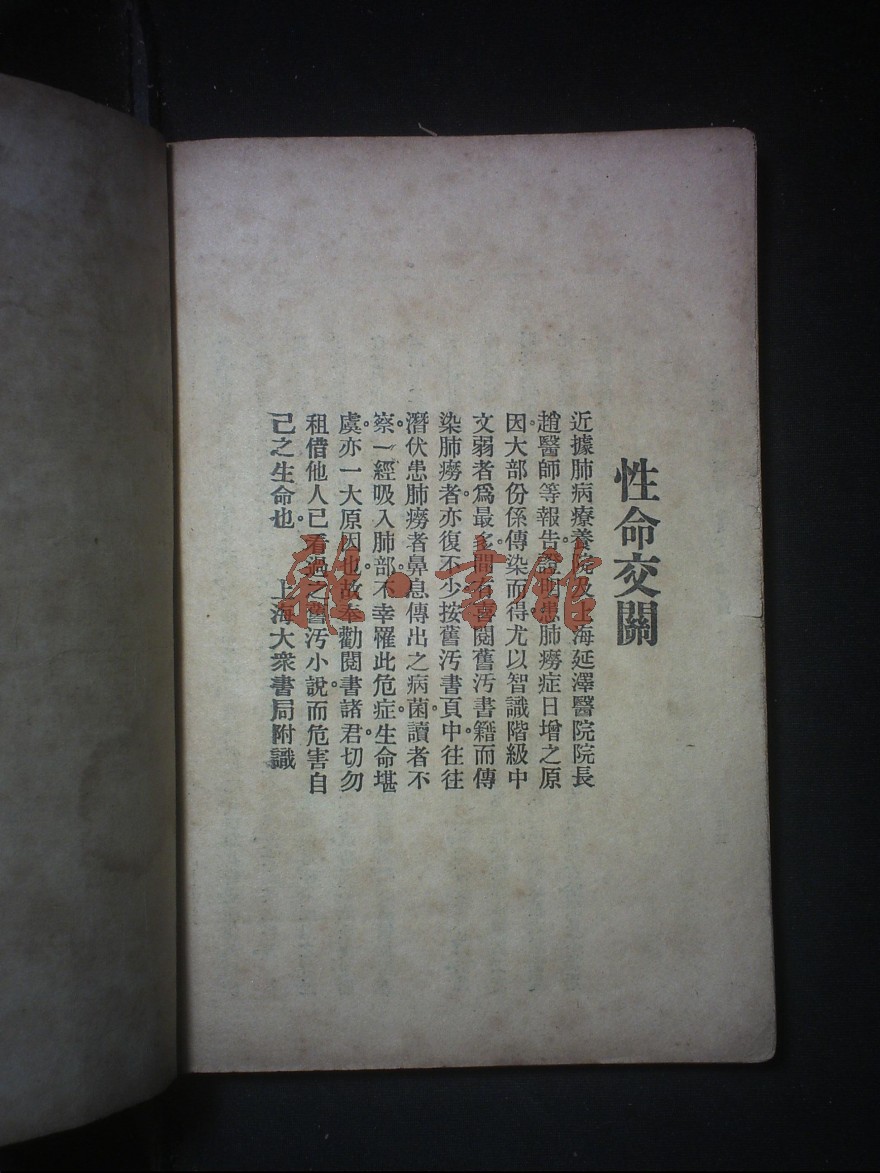 性命交關
近據肺病療養院及上海延澤醫院院長
趙醫師等報告說明患肺癆症日增之原
因。大部份係傳染而得。尤以智識階級中
文弱者爲最多。間有喜閱舊汚書籍而傳
染肺癆者。亦復不少。按舊汚書頁中。往往
潛伏患肺癆者鼻息傳出之病菌。讀者不
察。一經吸入肺部。不幸罹此危症。生命堪
虞。亦一大原因也。故奉勸閱書諸君。切勿
租借他人已看過之舊汚小說。而危害自
己之生命也。 上海大衆書局附識